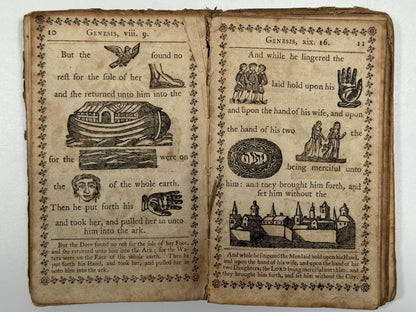 10 GENESIS, viii. 9.
But the found no
rest for the sole of her
and she returned unto him into the
for the were on
the of the whole earth.
Then he put forth his
and took her, and pulled her in unto
him into the ark.
But the Dove found no rest for the sole of her Foot,
and she returned unto him into the Ark; for the Wa-
ters were on the Face of the whole earth. Then he
put forth his Hand, and took her, and pulled her in
unto him into the ark.
GENESIS, xix. 16. 11
And while he lingered the
laid hold upon his
and upon the hand of his wife, and upon
the hand of his two the
being merciful unto
him: and they brought him forth, and
set him without the
And while he lingered the Men laid hold upon his Hand,
and upon the hand of his wife, and upon the hand of his
two Daughters, the LORD being merciful unto him: and
they brought him forth, and set him without the City.